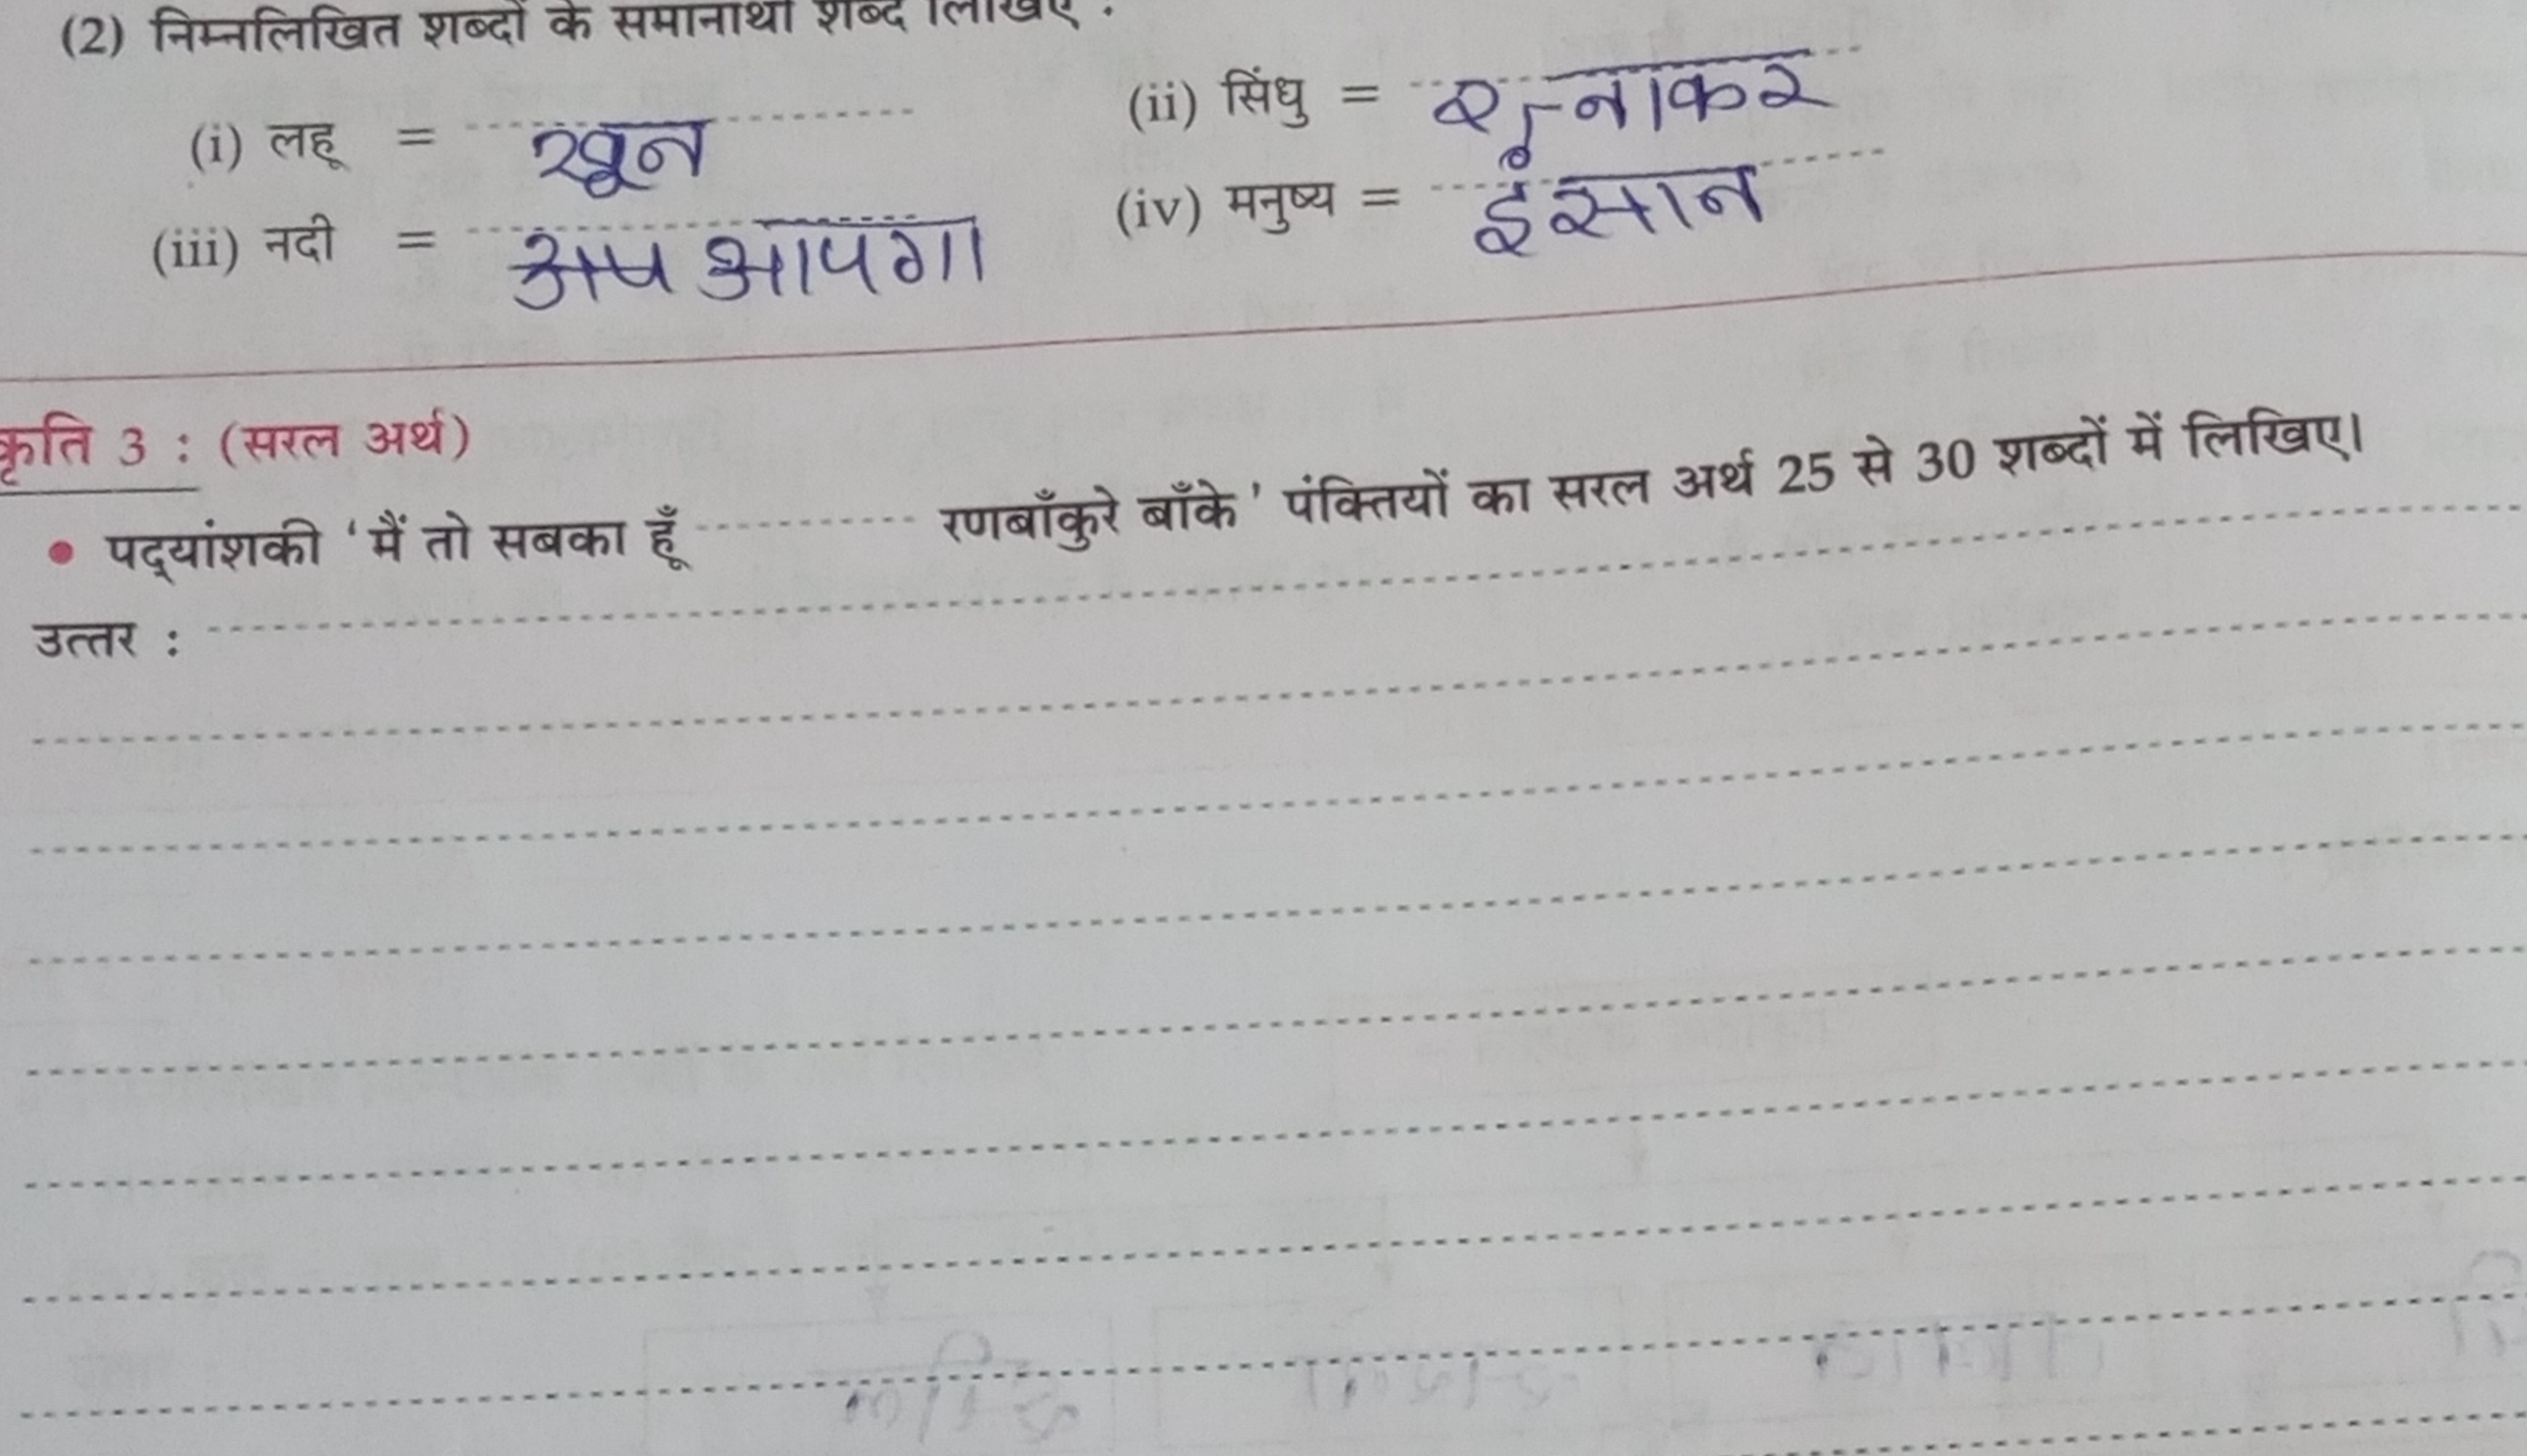 (2) निम्नलिखित शब्दों के समानार्थी शब्द लिखिए :
(i) लहू = खून (ii) सिंधु = रत्नाकर
(iii) नदी = अप आपगा (iv) मनुष्य = इंसान
कृति 3 : (सरल अर्थ)
• पद्यांशकी ‘मैं तो सबका हूँ ---------- रणबाँकुरे बाँके’ पंक्तियों का सरल अर्थ 25 से 30 शब्दों में लिखिए।
उत्तर :